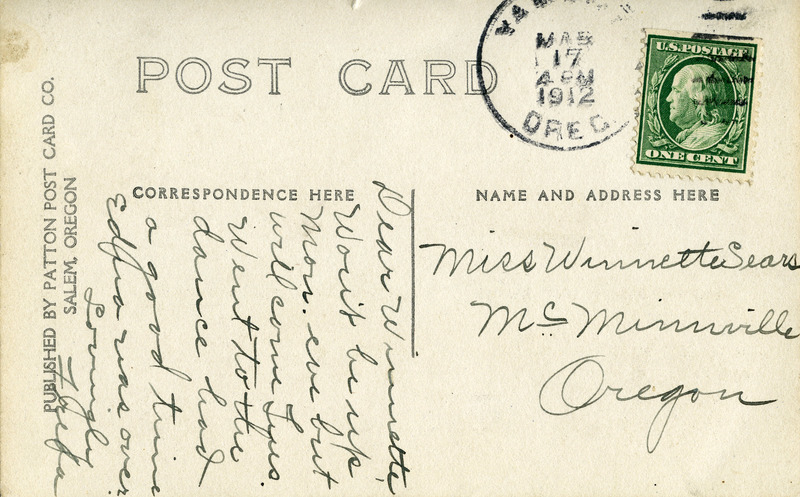 POST CARD
MAR
17
4 PM
1912
OREG.
U.S. POSTAGE
ONE CENT
PUBLISHED BY PATTON POST CARD CO.
SALEM, OREGON
CORRESPONDENCE HERE
NAME AND ADDRESS HERE
Dear Winnette,
Won't be up
Mon. eve but
will come Tues.
Went to the
dance had
a good time
Edna was over.
Lovingly
Miss Winnette Sears
Mc Minnville
Oregon